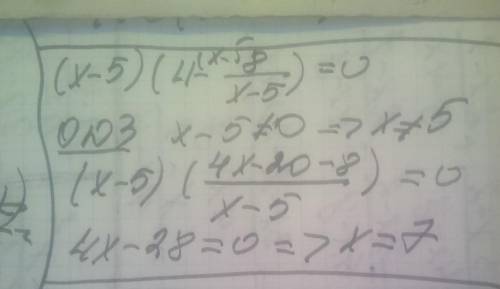 (x-5)(4^{(x-5}-\frac{8}{x-5})=0
ОДЗ x-5≠0 => x≠5
(x-5)(\frac{4x-20-8}{x-5})=0
4x-28=0 => x=7